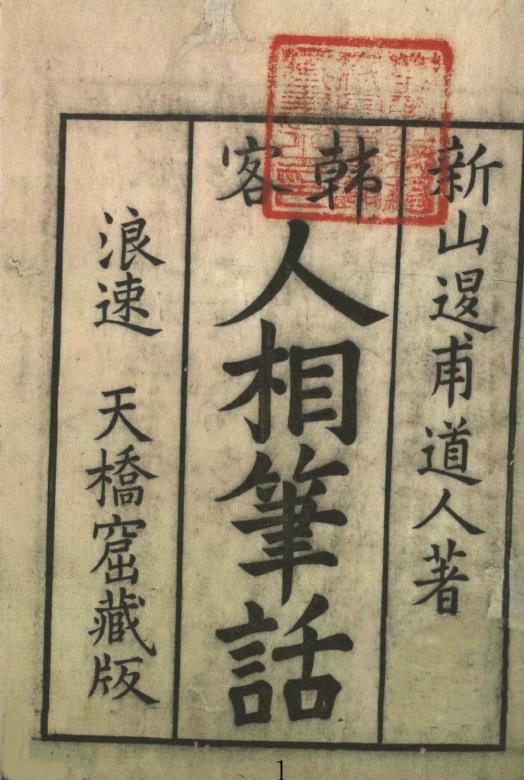 新山退甫道人著
韓客
人相筆話
浪速 天橋窟藏版
1